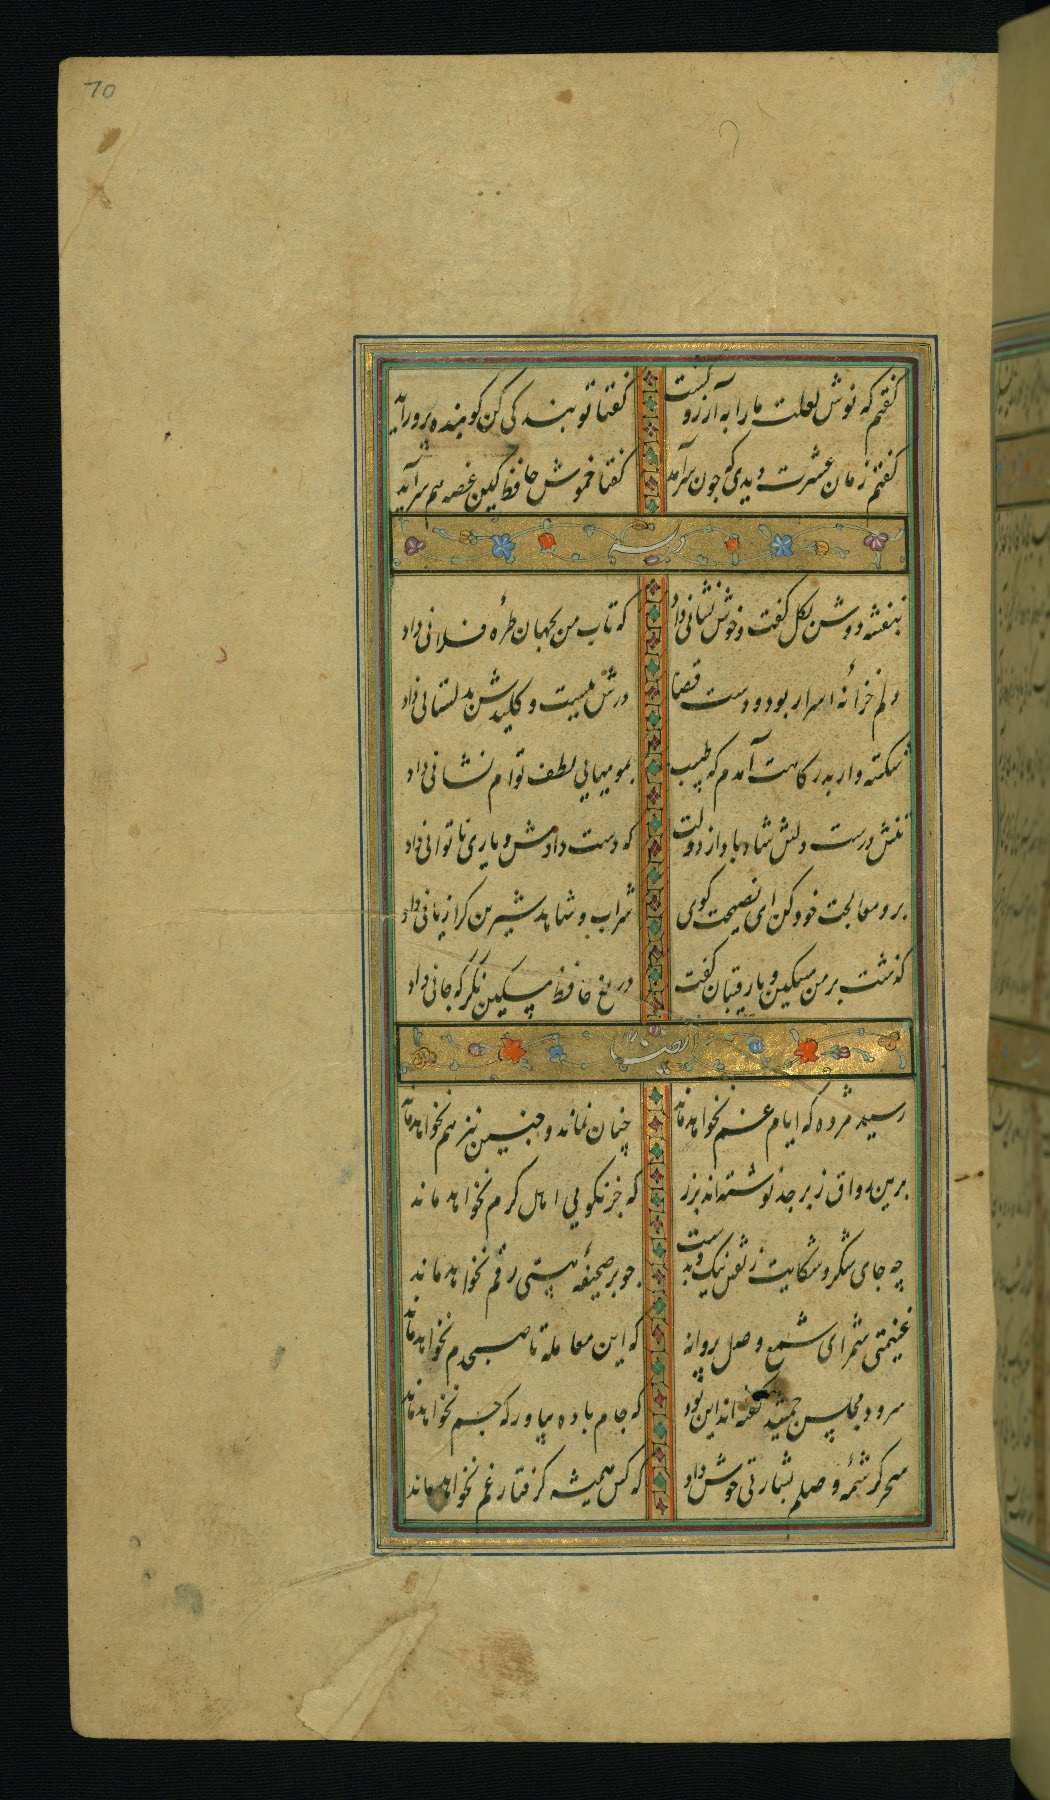 70
گفتم که نوش لعلت ما را به آرزو کشت
گفتا تو بندگی کن کو بنده پرور آید
گفتم زمان عشرت دیدی که چون سرآمد
گفتا خموش حافظ کین غصه هم سرآید
وله
بنفشه دوش بگل گفت و خوش نشانی داد
که تاب من بجهان طرهٔ فلانی داد
دلم خزانهٔ اسرار بود و دست قضا
درش ببست و کلیدش بدلستانی داد
شکسته وار بدرگاهت آمدم که طبیب
بمومیایی لطف توام نشانی داد
تنش درست و دلش شاد باد از دولت
که دست دادش و یاری ناتوانی داد
برو معالجت خود کن ای نصیحت گوی
شراب و شاهد شیرین کرا زیانی داد
گذشت بر من مسکین و با رقیبان گفت
دریغ حافظ مسکین نگر که جانی داد
ایضا
رسید مژده که ایام غم نخواهد ماند
چنان نماند و چنین نیز هم نخواهد ماند
برین رواق زبرجد نوشته‌اند بزر
که جز نکویی اهل کرم نخواهد ماند
چه جای شکر و شکایت ز نقش نیک و بدست
چو بر صحیفهٔ هستی رقم نخواهد ماند
غنیمتی شمر ای شمع وصل پروانه
که این معامله تا صبحدم نخواهد ماند
سرود مجلس جمشید گفته‌اند این بود
که جام باده بیاور که جم نخواهد ماند
سحر کرشمهٔ وصلم بشارتی خوش داد
که کس همیشه گرفتار غم نخواهد ماند